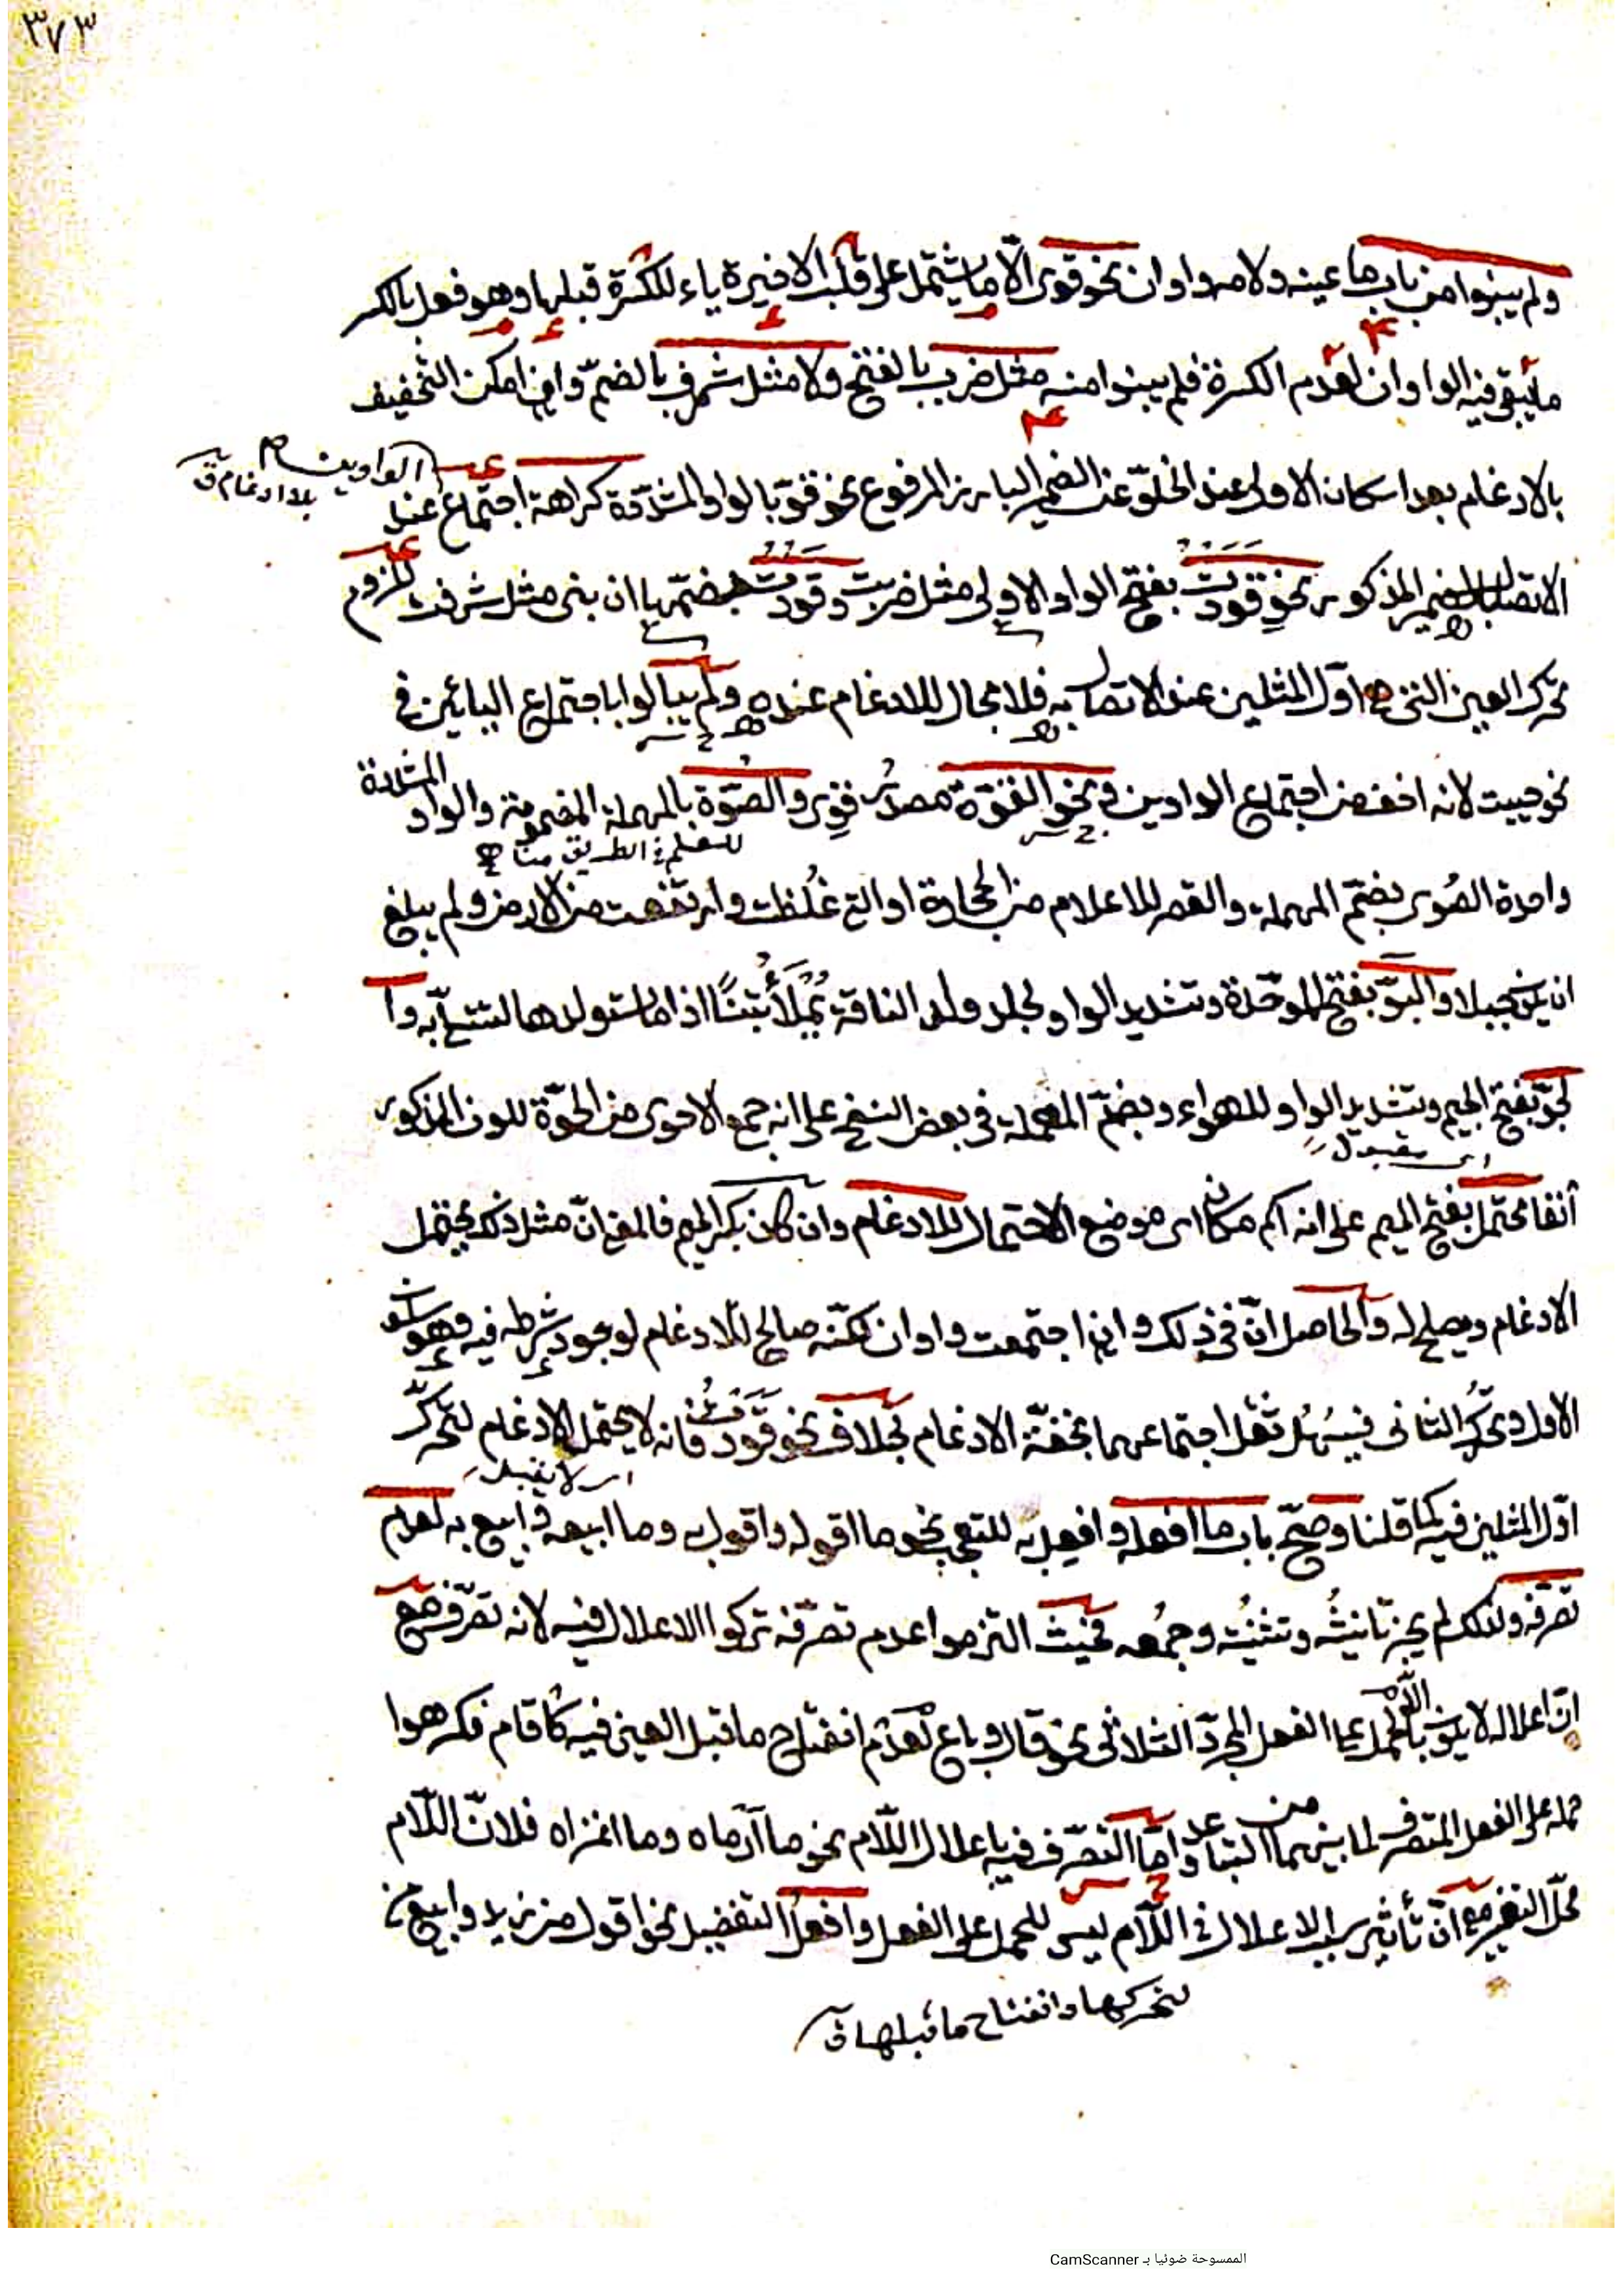 ٣٧٣
ولم يبنوا من باب ما عينه ولامه واوان نحو قوى الّا ما يشتمل على قلب الاخيرة ياء للكسرة قبلها وهو فعل بالكسر
ما يبقى فيه الواوان لعدم الكسرة فلم يبنوا منه مثل ضرب بالفتح ولا مثل شرف بالضمّ وان امكن التخفيف
بالادغام بعد اسكان الاولى عند الخلوّ عن الضمير البارز المرفوع نحو قوّ بالواو المشدّدة كراهة اجتماع عند
الواوين
بلا ادغام ق
الاتصال بالضمير المذكور نحو قَوَوْتُ بفتح الواو الاولى مثل ضربت وقَوُوْتُ بضمّها ان بنى مثل شرفت للزوم
تحرك العين التى هى اوّل المثلين عند الاتصال به فلا مجال للادغام عنده ولم يبالوا باجتماع اليائين فى
نحو حييت لانه اخف من اجتماع الواوين فى نحو القوّة مصدر قوى والصُوّة بالمهملة المضمومة والواو المشددة
واحدة الصُوى بضمّ المهملة والقصر للاعلام من الحجارة او التى غلُظت وارتفعت من الارض ولم يبلغ
ان يكون جبلا والبَوّ بفتح الموحّدة وتشديد الواو لجلد ولد الناقة يُمْلَأُ تبنًا اذا مات ولدها لتتسلّى به وا
لجوّ بفتح الجيم وتشديد الواو للهواء وبضمّ المهملة فى بعض النسخ على انه جمع الاحوى من الحُوّة للون المذكور
اى مقبول
آنفا محتمل بفتح الميم على انه اسم مكان اى موضع الاحتمال للادغام وان كان بكسر الميم فالمعنى انّ مثل ذلك يحتمل
الادغام ويصلح له والحاصل انّ فى ذلك وان اجتمعت واوان لكنّه صالح للادغام لوجود شرطه فيه وهو سكون
الاول وتحرّك الثانى فيسهُل ثقل اجتماعهما بخفّة الادغام بخلاف نحو قَوَوْتُ فانه لا يحتمل الادغام لتحرّك
اى لا يقبل
اوّل المثلين فيه كما قلنا وصحّ باب ما افعله وافعل به للتعجب نحو ما اقوله واقول به وما ابيعه وابيع به لعدم
تصرّفه ولذلك لم يجز تأنيثُه وتثنيته وجمعه فحيث التزموا عدم تصرّفه تركوا الاعلال فيه لانه تصرّف مع
انّ اعلاله لا يكون الّا بالحمل على الفعل المجرّد الثلاثى نحو قال وباع لعدم انفتاح ما قبل العين فيه كأقام فكرهوا
حمله على الفعل المتصرف لما بينهما من التباعد وامّا التصرّف فيه باعلال اللّام نحو ما أرماه وما اغزاه فلانّ اللّام
محلّ التغيير مع انّ تأثير سبب الاعلال فى اللّام ليس للحمل على الفعل وافعل التفضيل نحو اقول من زيد وابيع منه
لتحركها وانفتاح ما قبلها ق
الممسوحة ضوئيا بـ CamScanner